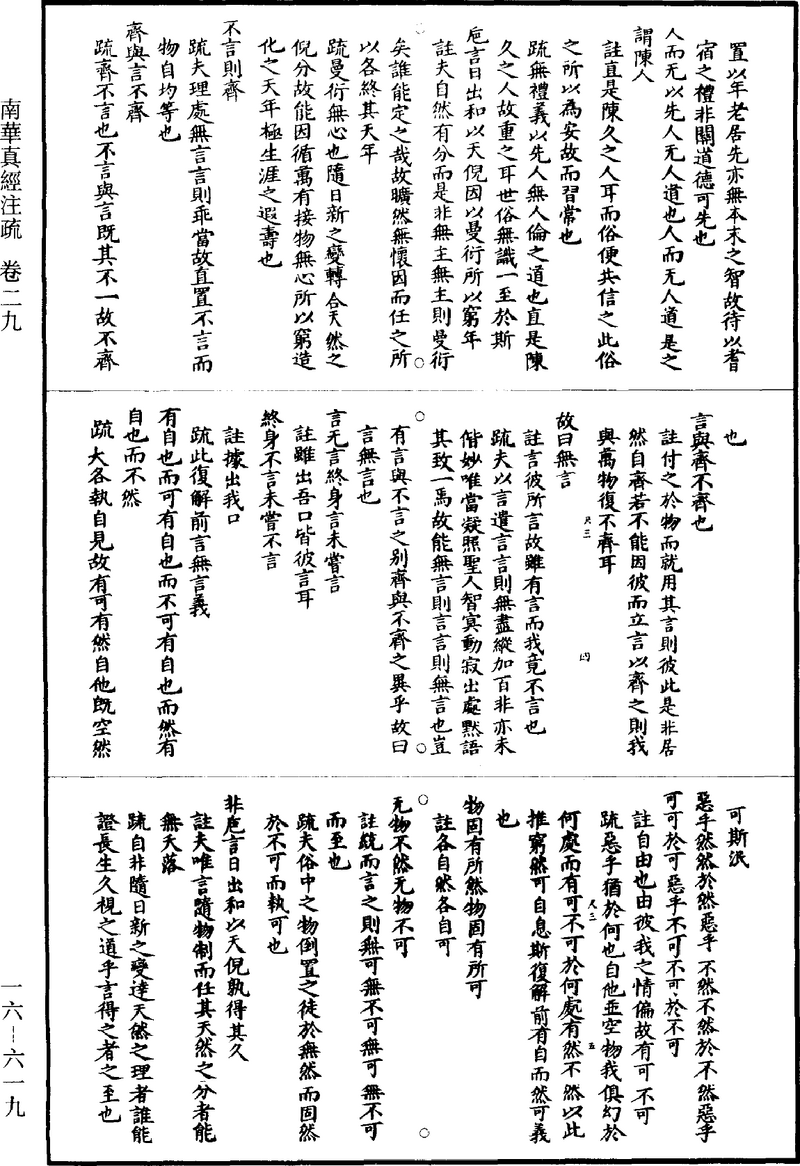 置以年老居先亦無本末之智故待以耆
宿之禮非關道德可先也
人而无以先人无人道也人而无人道是之
謂陳人
註直是陳久之人耳而俗便共信之此俗
之所以為安故而習常也
疏無禮義以先人無人倫之道也直是陳
久之人故重之耳世俗無識一至於斯
巵言日出和以天倪因以曼衍所以窮年
註夫自然有分而是非無主無主則曼衍
矣誰能定之哉故曠然無懷因而任之所
以各終其天年
疏曼衍無心也隨日新之變轉合天然之
倪分故能因循萬有接物無心所以窮造
化之天年極生涯之遐壽也
不言則齊
疏夫理處無言言則乖當故直置不言而
物自均等也
齊與言不齊
疏齊不言也不言與言既其不一故不齊
也
言與齊不齊也
註付之於物而就用其言則彼此是非居
然自齊若不能因彼而立言以齊之則我
與萬物復不齊耳
尺三
四
故曰無言
註言彼所言故雖有言而我竟不言也
疏夫以言遣言言則無盡縱加百非亦未
偕妙唯當凝照聖人智冥動寂出處默語
其致一焉故能無言則言言則無言也豈
有言與不言之別齊與不齊之異乎故曰
言無言也
言无言終身言未嘗言
註雖出吾口皆彼言耳
終身不言未嘗不言
註據出我口
疏此復解前言無言義
有自也而可有自也而不可有自也而然有
自也而不然
疏大各執自見故有可有然自他既空然
可斯泯
惡乎然然於然惡乎不然不然於不然惡乎
可可於可惡乎不可不可於不可
註自由也由彼我之情偏故有可不可
疏惡乎猶於何也自他並空物我俱幻於
尺三
五
何處而有可不可於何處有然不然以此
推窮然可自息斯復解前有自而然可義
也
物固有所然物固有所可
註各自然各自可
无物不然无物不可
註統而言之則無可無不可無可無不可
而至也
疏夫俗中之物倒置之徒於無然而固然
於不可而執可也
非巵言日出和以天倪孰得其久
註夫唯言隨物制而任其天然之分者能
無夭落
疏自非隨日新之變達天然之理者誰能
證長生久視之道乎言得之者之至也
南華真經注疏 卷二九
一六—六一九